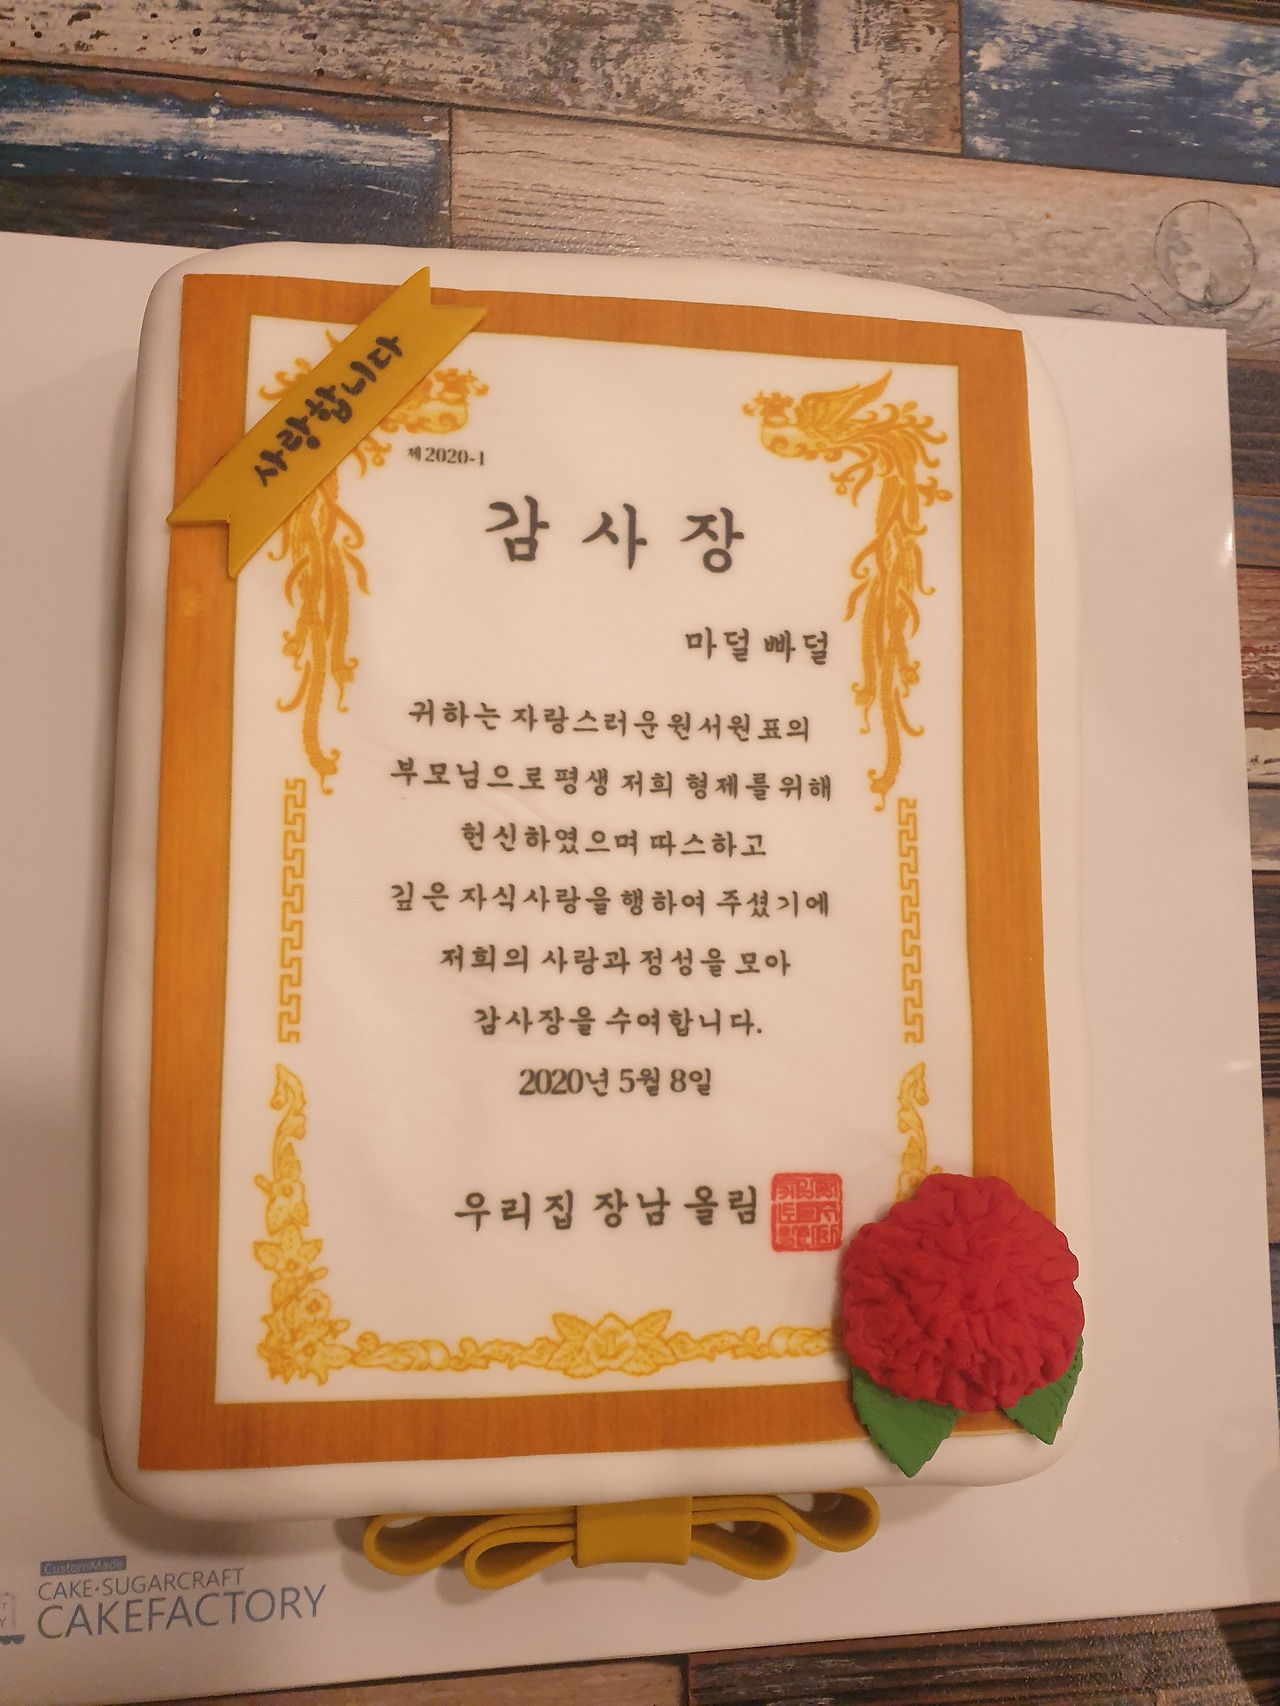 사랑합니다
제2020-1
감사장
마덜 빠덜
귀하는 자랑스러운 원서원표의
부모님으로 평생 저희 형제를 위해
헌신하였으며 따스하고
깊은 자식사랑을 행하여 주셨기에
저희의 사랑과 정성을 모아
감사장을 수여합니다.
2020년 5월 8일
우리집 장남 올림
CustomMade
CAKE·SUGARCRAFT
CAKEFACTORY